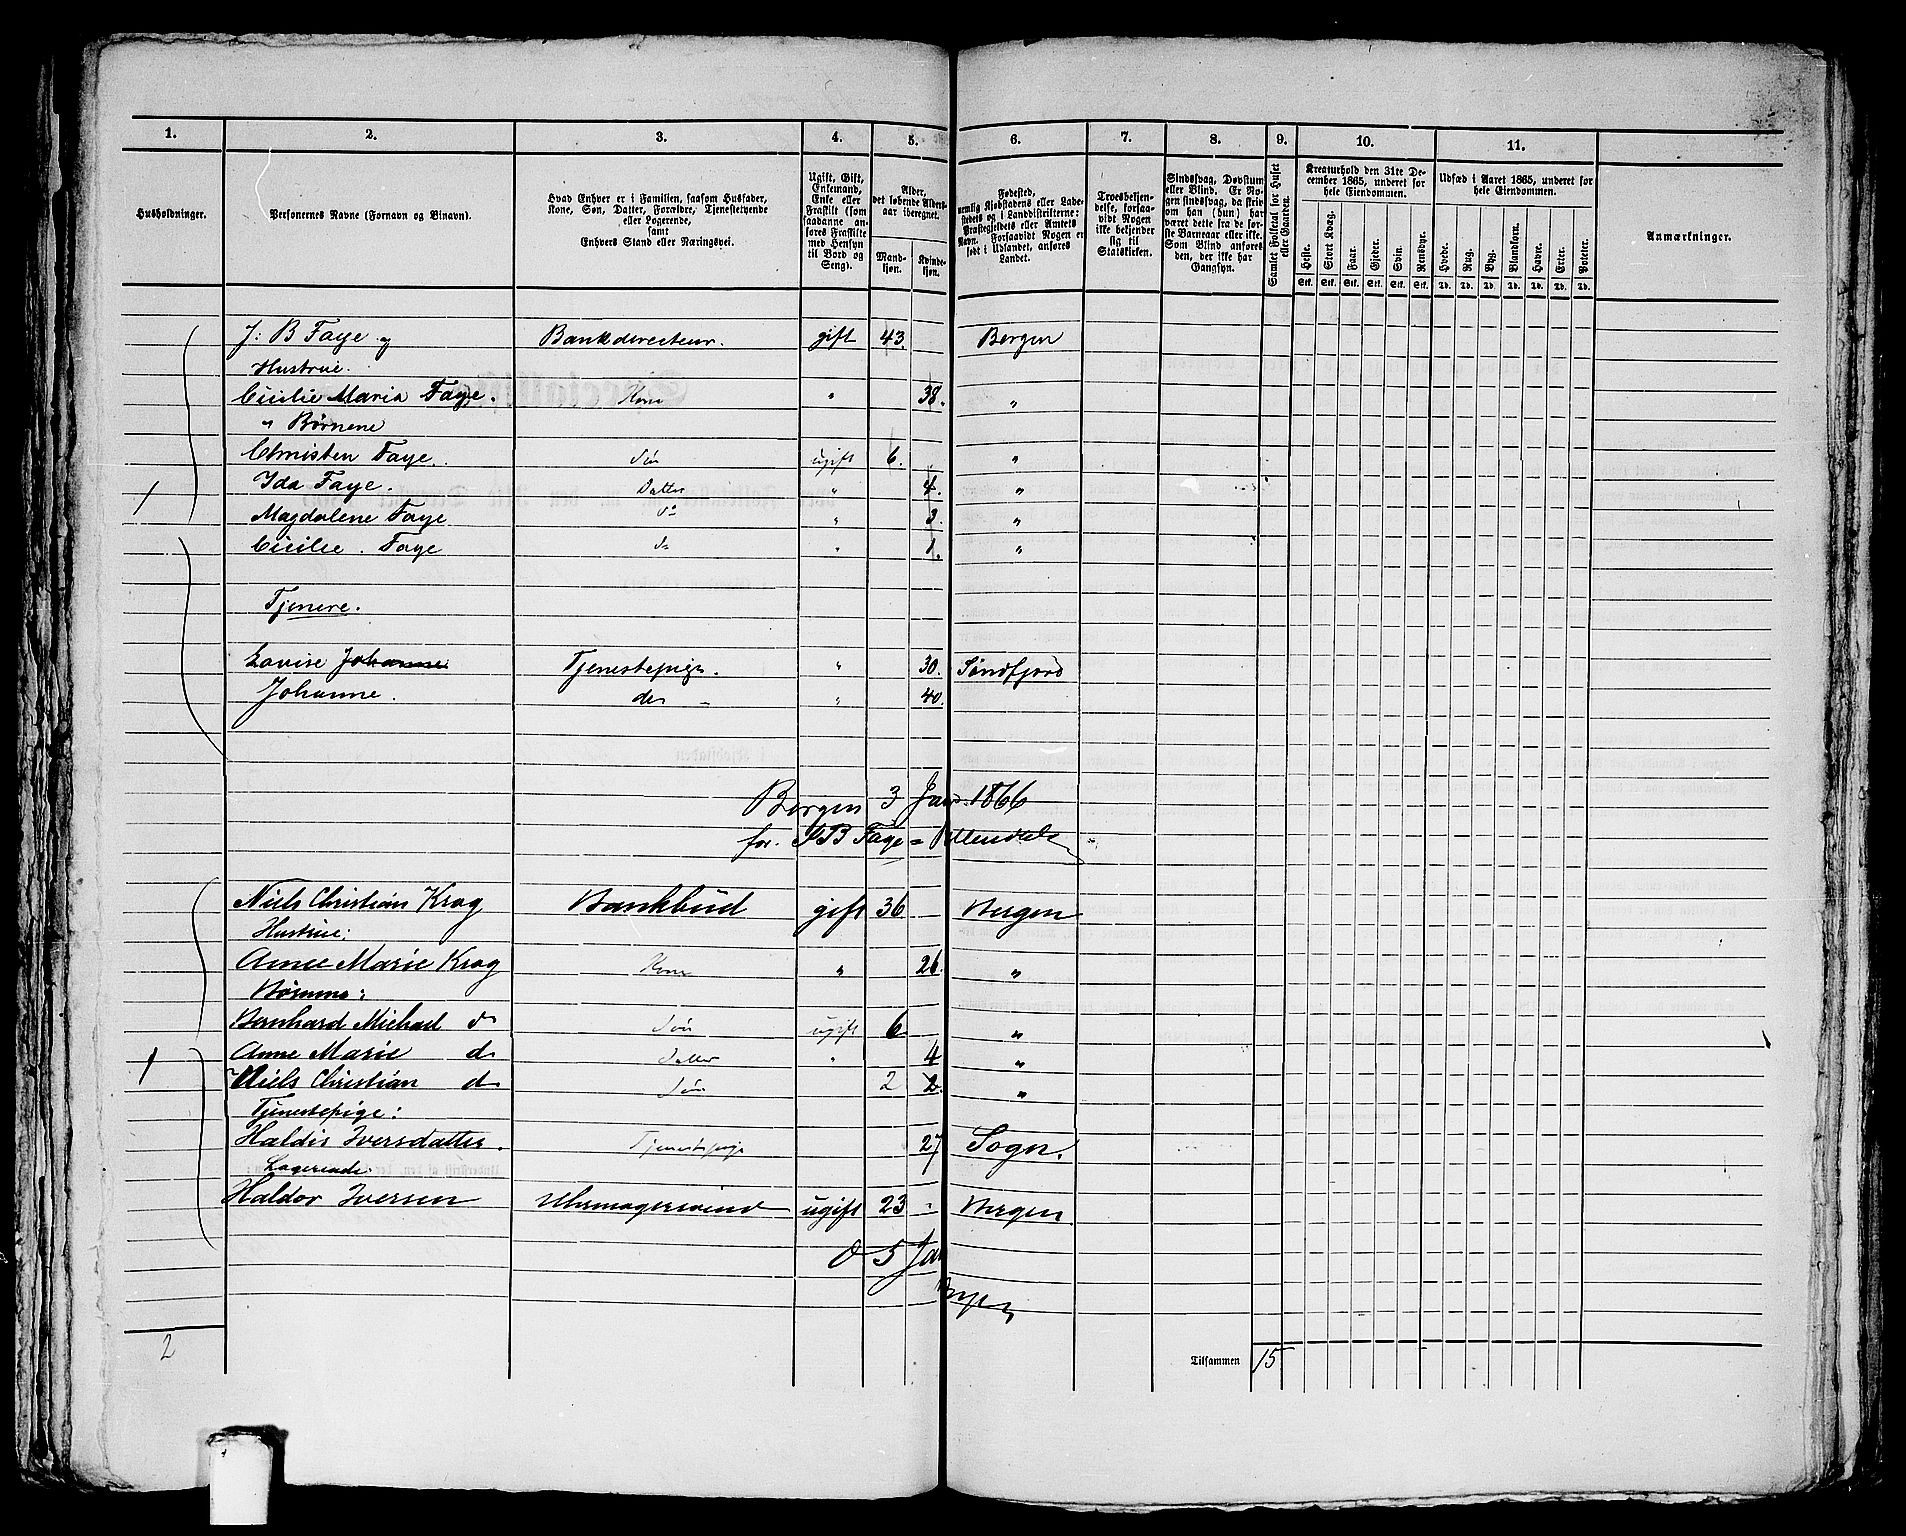 1. 2. 3. 4. 5. 6. 7. 8. 9. 10. 11.
Husholdninger.
Personernes Navne (Fornavn og Binavn).
Hvad Enhver er i Familien, saasom Husfader,
Kone, Søn, Datter, Forældre, Tjenestetyende
eller Logerende,
samt
Enhvers Stand eller Næringsvei.
Ugift, Gift,
Enkemand,
Enke eller
Fraskilt (som
saadanne an-
føres Fraskilte
med Hensyn
til Bord og
Seng).
Alder,
det løbende Alders-
aar iberegnet.
Mand-
kjøn.
Kvinde-
kjøn.
Fødested,
nemlig Kjøbstadens eller Lade-
stedets og i Landdistrikterne:
Præstegjeldets eller Amtets
Navn. Forsaavidt Nogen er
født i Udlandet, anføres
Landet.
Troesbekjen-
delse, forsaa-
vidt Nogen
ikke bekjender
sig til
Statskirken.
Sindssvag, Døvstum
eller Blind. Er No-
gen sindssvag, da skriv
om han (hun) har
været det fra de før-
ste Barneaar eller ikke.
Som Blind anføres
den, der ikke har
Gangsyn.
Samlet Folketal for Huset
eller Gaarden.
Kreaturhold den 31te De-
cember 1865, underet for
hele Eiendommen.
Heste. Stort Kvæg. Faar. Gjeder. Svin. Rensdyr.
Stk. Stk. Stk. Stk. Stk. Stk.
Udsæd i Aaret 1865, underet for
hele Eiendommen.
Hvede. Rug. Byg. Blandkorn. Havre. Erter. Poteter.
Td. Td. Td. Td. Td. Td. Td.
Anmærkninger.
J: B Faye og Bankdirecteur. gift 43. Bergen
Hustrue.
Cicilie Maria Faye. Kone " 38. "
" Børnene
Christen Faye. Søn ugift 6. "
1 Ida Faye. Datter " 4. "
Magdalene Faye do " 3. "
Cicilie. Faye do " 1. "
Tjenere.
Lovise Johanne Tjenestepige. " 30. Søndfjord
Johanne. do " 40.
Bergen 3 Jan. 1866
for. J B Faye
Niels Christian Krog Bankbud gift 36 Bergen
Hustrue:
Anne Marie Krog Kone " 26. "
Børnene:
Bernhard Michael do Søn ugift 6 "
1 Anne Marie do Datter " 4 "
Niels Christian do Søn 2 2. "
Tjenestepige:
Haldis Iversdatter. Tjenestepige 27 Sogn.
Logerende:
Haldor Iversen Uhrmagersvend ugift 23 Bergen
d 5 Jan
2
Tilsammen 15